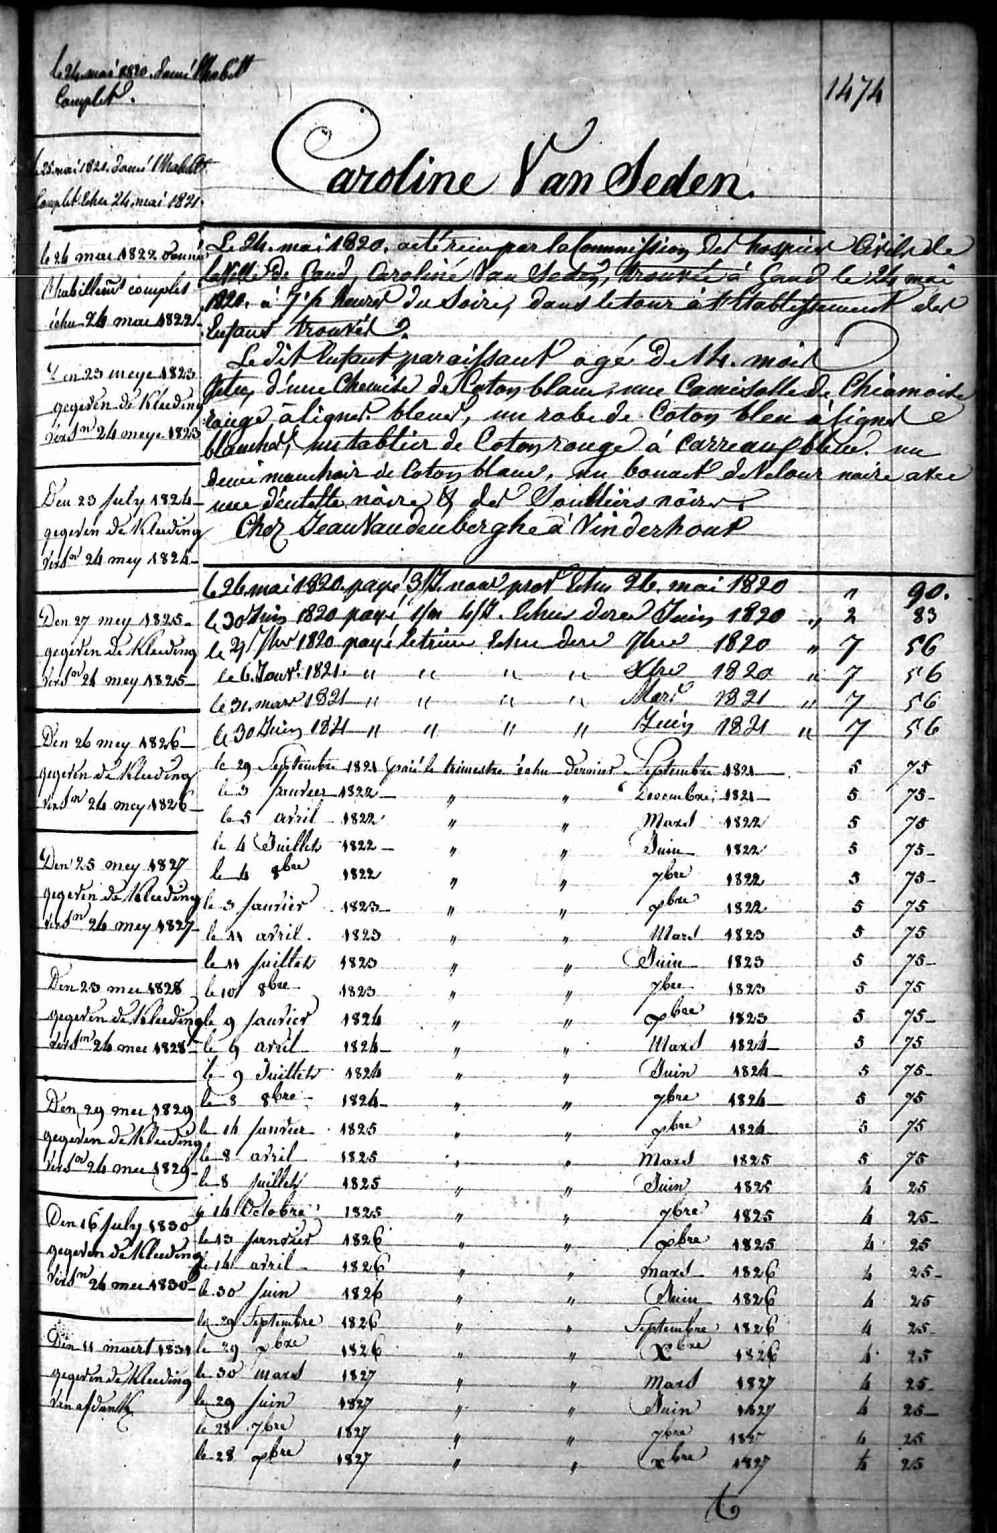 le 24 mai 1820. Donné l'habillt
Complet.
1474
Caroline Van Seden.
le 25 mai 1821. Donné l'habillt
Complet Echu 24 mai 1821.
le 24 mai 1822 donné
l'habillemt complet
échu 24 mai 1822
Den 23 meye 1823
gegeven de Kleeding
versn 24 meye 1823
Den 23 July 1824
gegeven de Kleeding
versn 24 mey 1824
Den 27 mey 1825
gegeven de Kleeding
versn 24 mey 1825
Den 26 mey 1826
gegeven de Kleeding
versn 24 mey 1826
Den 25 mey 1827
gegeven de Kleeding
versn 24 mey 1827
Den 23 mei 1828
gegeven de Kleeding
versn 24 mei 1828
Den 29 mei 1829
gegeven de Kleeding
versn 24 mei 1829
Den 16 July 1830
gegeven de Kleeding
versn 24 mei 1830
Den 11 maert 1831
gegeven de Kleeding
Le 24. mai 1820. acté reçu par la Commission des hospices Civils de
la Ville de Gand, Caroline Van Seden, trouvée à Gand le 24 mai
1820. à 7 1/2 heures du Soire, dans le tour a l'Etablissement des
Enfans trouvés.
Le dit Enfant paraissant agé de 14. mois
vetu d'une Chemise de Coton blanc, une Camisolle de Chiamoise
rouge à lignes bleues, un robe de Coton bleu à lignes
blanches, un tablier de Coton rouge à carreaux bleue. un
demi mouchoir de Coton blanc, un bonnet de Velour noire avec
une dentelle nôire & des Souliers nôirs.
Chez Jean Vandenberghe à Vinderhout
le 26 mai 1820 payé 3 Echu 26 mai 1820 " 90.
le 30 Juin 1820 payé Echus dore Juin 1820 " 2 83
le 29 7bre 1820 payé le trime Echu dere 7bre 1820 " 7 56
le 6. Janvr 1821. " " " " Xbre 1820 " 7 56
le 31. mars 1821 " " " " Mars 1821 " 7 56
le 30 Juin 1821 " " " " Juin 1821 " 7 56
le 29 Septembre 1821 payé le trimestre échu dernier Septembre 1821 5 75
le 3 janvier 1822 " " Decembre 1821 5 75
le 5 avril 1822 " " Mars 1822 5 75
le 4 Juillet 1822 " " Juin 1822 5 75
le 4 8bre 1822 " " 7bre 1822 5 75
le 3 janvier 1823 " " xbre 1822 5 75
le 11 avril. 1823 " " Mars 1823 5 75
le 11 juillet 1823 " " Juin 1823 5 75
le 10 8bre 1823 " " 7bre 1823 5 75
le 9 janvier 1824 " " xbre 1823 5 75
le 9 avril 1824 " " Mars 1824 5 75
le 9 Juillet 1824 " " Juin 1824 5 75
le 8 8bre 1824 " " 7bre 1824 5 75
le 14 janvier 1825 " " xbre 1824 5 75
le 8 avril 1825 " " Mars 1825 5 75
le 8 juillet 1825 " " Juin 1825 4 25
14 Octobre 1825 " " 7bre 1825 4 25
le 13 janvier 1826 " " xbre 1825 4 25
le 14 avril 1826 " " mars 1826 4 25
le 30 juin 1826 " " Juin 1826 4 25
le 29 Septembre 1826 " " Septembre 1826 4 25
le 29 xbre 1826 " " Xbre 1826 4 25
le 30 mars 1827 " " Mars 1827 4 25
le 29 juin 1827 " " Juin 1827 4 25
le 28 7bre 1827 " " 7bre 1827 4 25
le 28 xbre 1827 " " xbre 1827 4 25